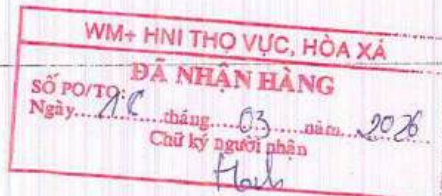 WM+ HNI THỌ VỰC, HÒA XÁ
ĐÃ NHẬN HÀNG
SỐ PO/TO:
Ngày.........tháng....03....năm...2026
Chữ ký người nhận